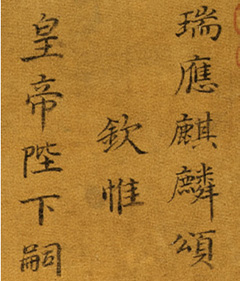 瑞應麒麟頌
欽惟
皇帝陛下嗣